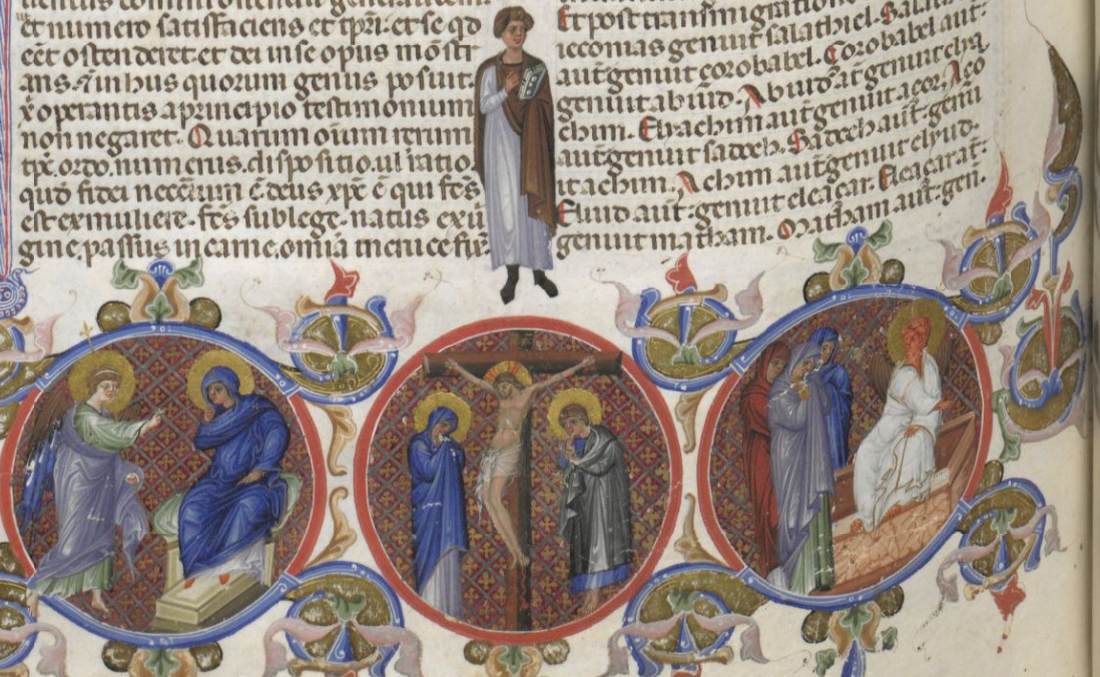 et numero satisfaciens et tpri. et se qđ
eēt ostenderet et dei in se opus mōstr
ans. & in hus quorum genus posuit.
operantis a principio testimonium
non negaret. Quarum oīum rerum
tp̄c. ordo. numerus. dispositio. ul ratio.
quod fidei necc̄ium ē. deus xp̄c ē qui fc̄s
est ex muliere. fc̄s sub lege. natus ex uir
gine. passus in carne. omīa in cruce fix
Et post transmigratione
ieconias genuit salathiel. Salat
aūt genuit çorobabel. Çorobabel aūt.
genuit abiud. Abiud aūt genuit elya
chim. Elyachim aūt genuit açor. Aço
aūt genuit sadoch. Sadoch aūt. genu
it achim. Achim aūt genuit elyud.
Eliud aūt. genuit eleaçar. Eleaçar aūt.
genuit matham. Matham aūt. gen.